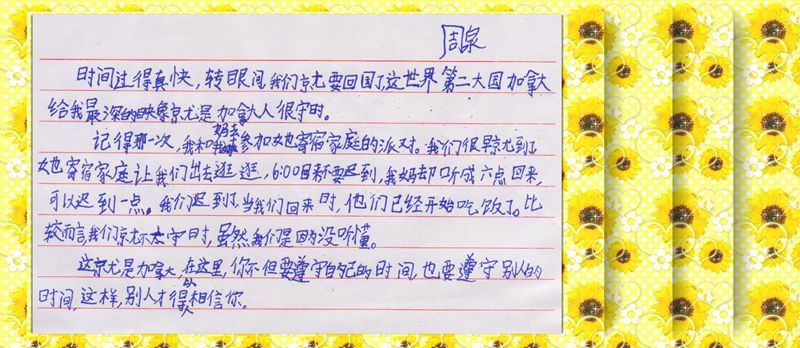 周泉
时间过得真快，转眼间，我们就要回国了，这世界第二大国加拿大
给我最深的映象就是加拿大人很守时。
记得那一次，我和妈去参加她寄宿家庭的派对。我们很早就到了
她寄宿家庭让我们出去逛逛，6:00目要迟到，我妈却听成六点回来，
可以迟到一点。我们迟到了，当我们回来时，他们已经开始吃饭了。比
较而言我们就不太守时，虽然我们是因为没听懂。
这就是加拿大，在这里，你不但要遵守自己的时间，也要遵守别人的
时间，这样，别人才得以相信你。